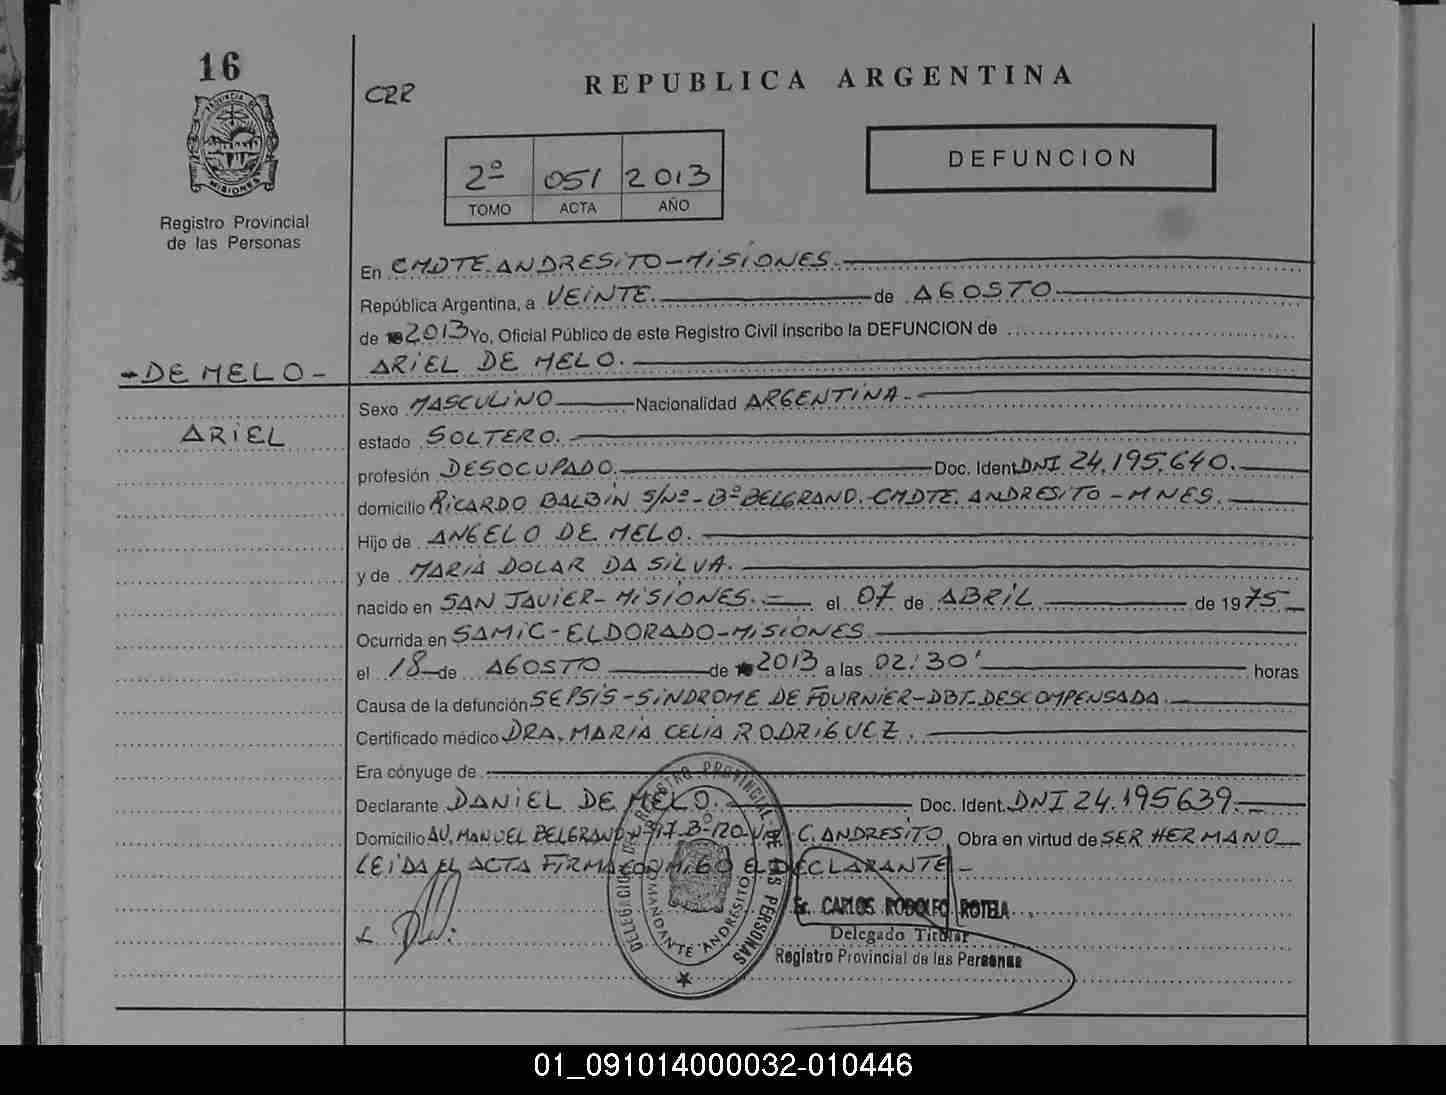 16
PROVINCIA DE
MISIONES
Registro Provincial
de las Personas
CRR
REPUBLICA ARGENTINA
2º 051 2013
TOMO ACTA AÑO
DEFUNCION
En CMDTE ANDRESITO-MISIONES.
República Argentina, a VEINTE. de AGOSTO
de 2013 Yo, Oficial Público de este Registro Civil inscribo la DEFUNCION de
-DE MELO- ARIEL DE MELO.
Sexo MASCULINO Nacionalidad ARGENTINA.
ARIEL estado SOLTERO.
profesión DESOCUPADO. Doc. Ident. DNI 24.195.640.
domicilio RICARDO BALBIN S/Nº-Bº BELGRANO. CMDTE. ANDRESITO-MNES.
Hijo de ANGELO DE MELO.
y de MARIA DOLAR DA SILVA.
nacido en SAN JAVIER-MISIONES.- el 07 de ABRIL de 1975
Ocurrida en SAMIC-ELDORADO-MISIONES
el 18 de AGOSTO de 2013 a las 02:30' horas
Causa de la defunción SEPSIS-SINDROME DE FOURNIER-DBT.DESCOMPENSADA.
Certificado médico DRA. MARIA CELIA RODRIGUEZ.
Era cónyuge de
Declarante DANIEL DE MELO. Doc. Ident. DNI 24.195639.
Domicilio AV. MANUEL BELGRANO C. ANDRESITO Obra en virtud de SER HERMANO
LEIDA EL ACTA FIRMA CONMIGO EL DECLARANTE-
DELEGACION DEL REGISTRO PROVINCIAL DE LAS PERSONAS
COMANDANTE ANDRESITO
CARLOS RODOLFO ROTELA
Delegado Titular
Registro Provincial de las Personas
01_091014000032-010446